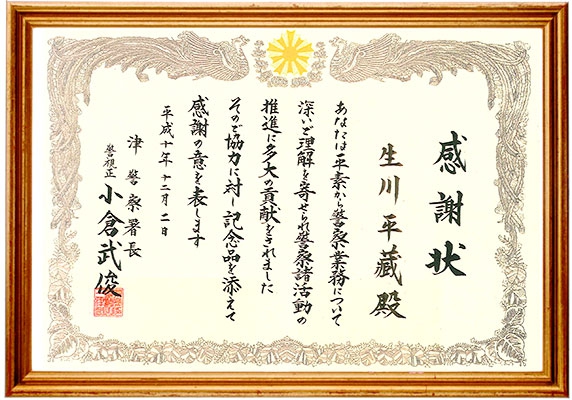 感謝状
生川平藏殿
あなたは平素から警察業務について
深いご理解を寄せられ警察諸活動の
推進に多大の貢献をされました
そのご協力に対し記念品を添えて
感謝の意を表します
平成十年十二月二日
津警察署長
警視正 小倉武俊